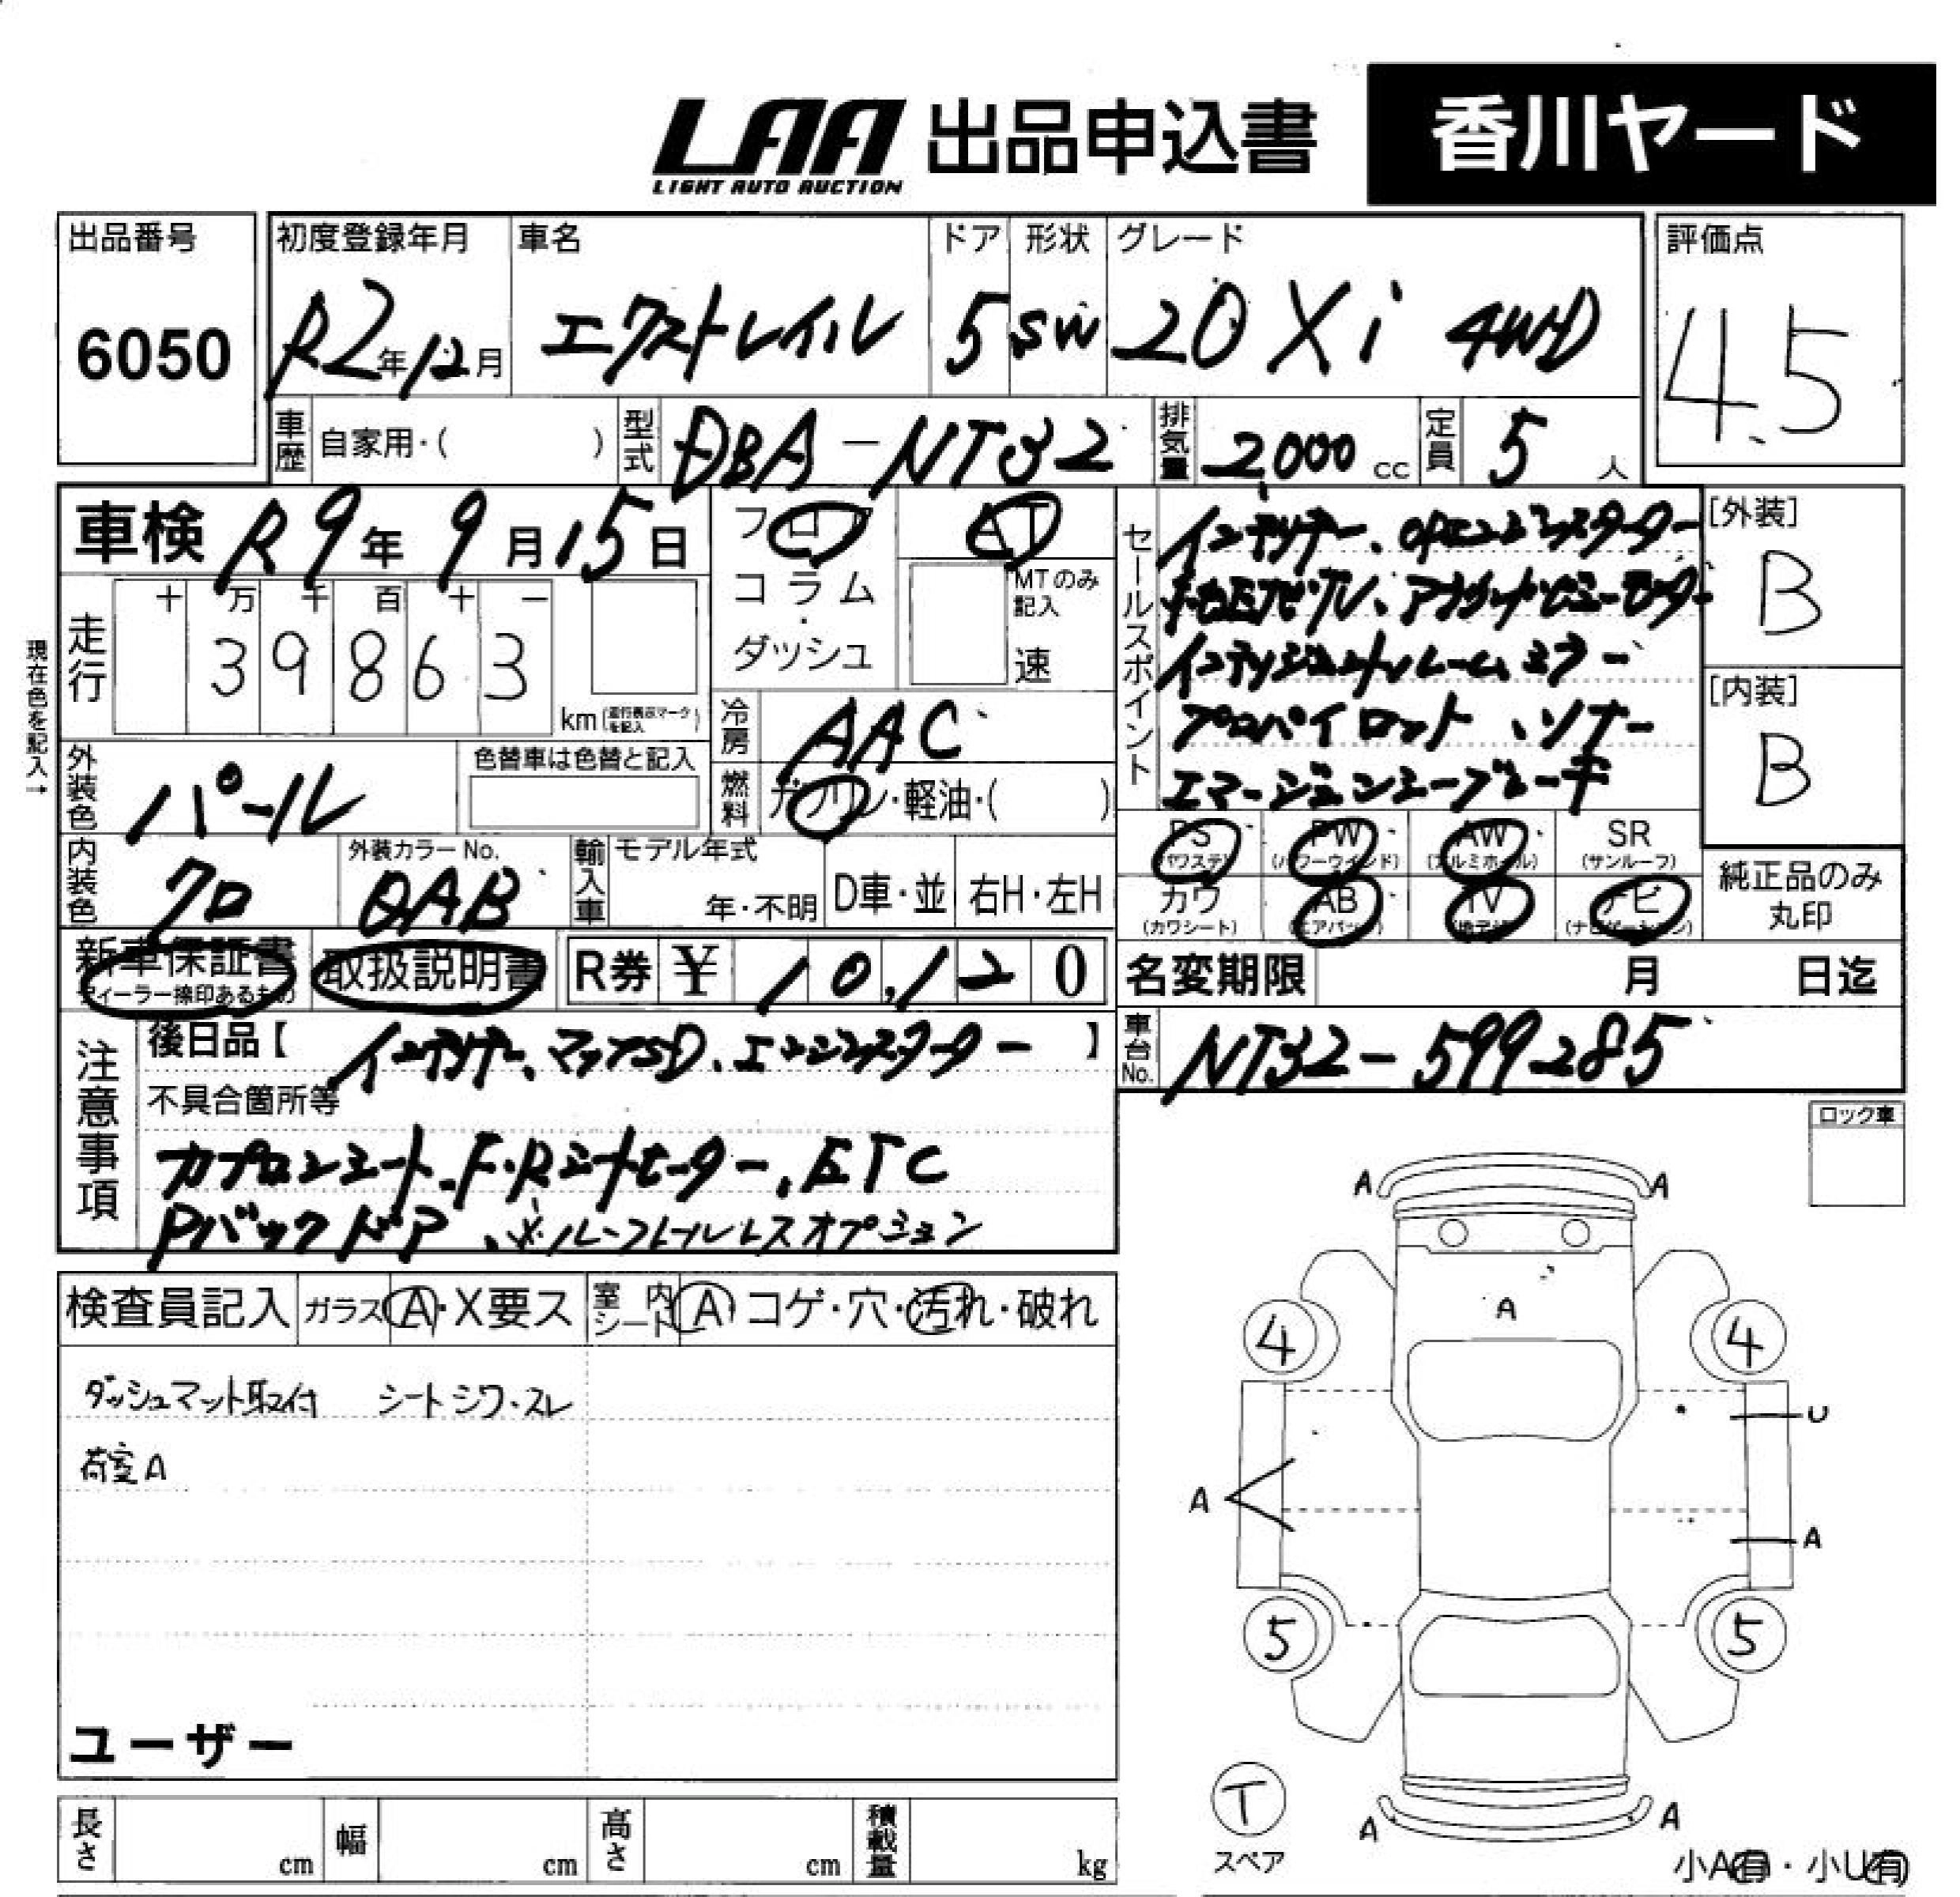 LAA 出品申込書 香川ヤード
LIGHT AUTO AUCTION
出品番号 初度登録年月 車名 ドア 形状 グレード 評価点
6050 R2年12月 エクストレイル 5 SW 20Xi 4WD 4.5
車歴 自家用・( ) 型式 DBA-NT32 排気量 2,000 cc 定員 5 人
車検 R9年9月15日
フロア AT
コラム・ダッシュ
MTのみ記入 速
現在色を記入→
走行 十 万 千 百 十 一
39863
km (走行表示マークを記入)
冷房 AAC
燃料 ガソリン・軽油・( )
外装色 パール 色替車は色替と記入
内装色 クロ 外装カラーNo. QAB 輸入車 モデル年式 年・不明 D車・並 右H・左H
新車保証書 ディーラー捺印あるもの 取扱説明書 R券 ¥ 10,120
セールスポイント
インテリキー、OPエンジンスターター
インテリジェントルームミラー
プロパイロット、ソナー
エマージェンシーブレーキ
[外装]
B
[内装]
B
PS (パワステ) PW (パワーウインド) AW (アルミホイール) SR (サンルーフ)
カワ (カワシート) AB (エアバッグ) TV (地デジ) ナビ (ナビゲーション)
純正品のみ丸印
名変期限 月 日迄
車台No. NT32-599285
注意事項
後日品【インテリキー、マップSD、エンジンスターター】
不具合箇所等
カプロンシート、F・Rシートヒーター、ETC
Pバックドア、※ルーフレールレスオプション
ロック車
検査員記入 ガラス A・X要ス 室内シート A コゲ・穴・汚れ・破れ
ダッシュマット取付 シートシワ・スレ
荷室A
ユーザー
長さ cm 幅 cm 高さ cm 積載量 kg
A A
A
4 4
U
A
A
5 5
T
スペア
A A
小A(有)・小U(有)